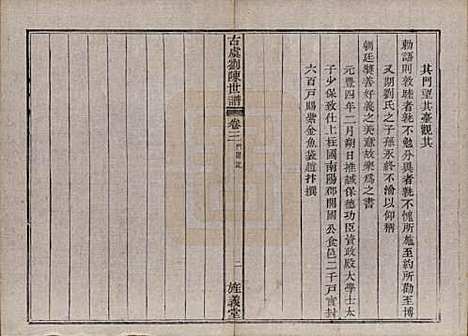 其門望其臺觀其
勅語則敦睦者孰不勉分異者孰不愧所施至約所勸至博
又期劉氏之子孫永終不渝以仰稱
朝廷獎善好義之美意故樂為之書
元豐四年二月朔日推誠保德功臣資政殿大學士太
子少保致仕上柱國南陽郡開國公食邑二千戶實封
六百戶賜紫金魚袋趙抃撰
古虞劉陳世譜
卷三
二
旌義堂